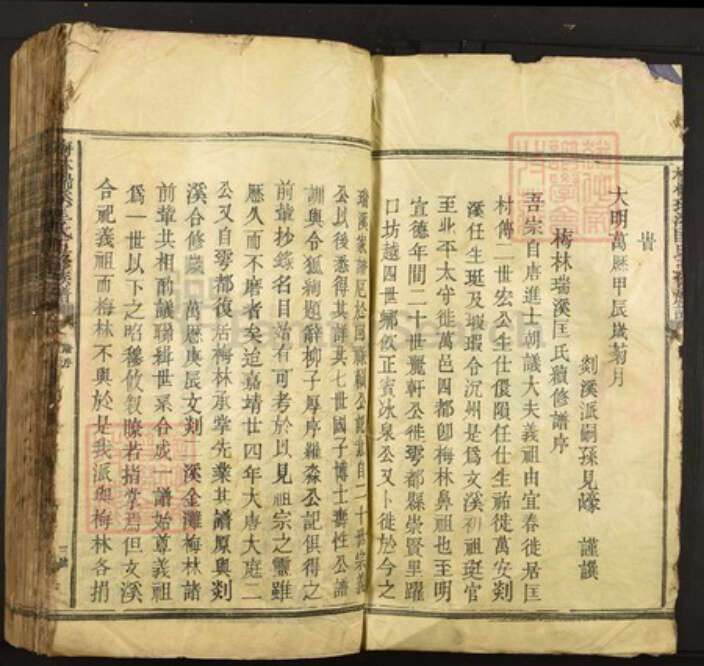 昔
大明萬歷甲辰歲菊月
剡溪派嗣孫見嶑 謹譔
梅林瑞溪匡氏續修譜序
吾宗自唐進士朝議大夫義祖由宜春徙居匡
村傳二世宏公生仕儇隕任仕生祐徙萬安剡
溪任生珽及瑕瑕令沅州是爲文溪初祖珽官
至北平太守徙萬邑四都卽梅林鼻祖也至明
宣德年間二十世麗軒公徙雩都縣崇賢里躍
口坊越四世鄉飲正賓冰泉公又卜徙於今之
瑞溪
公以後悉得其詳其七世國子博士壽性公譜
訓與令狐絢題辭柳子厚序羅淼公記俱得之
前輩抄錄名目治有可考於以見祖宗之靈雖
歷久而不磨者矣迨嘉靖廿四年大唐大庭二
公又自雩都復居梅林承掌先業其譜原與剡
溪合修歲萬歷庚辰文剡溪金灘梅林諸
前輩共相酌議聯緝世系合成一譜始尊義祖
爲一世以下之昭穆攸敘瞭若指掌焉但文溪
合祀義祖而梅林不與於是我派與梅林各捐